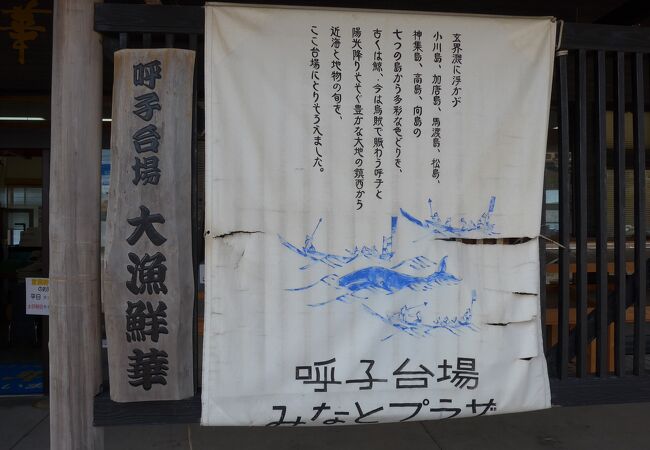 華
呼子台場
大漁鮮華
玄界灘に浮かぶ
小川島、加唐島、馬渡島、松島、
神集島、高島、向島の
七つの島から多彩な色どりを、
古くは鯨、今は烏賊で賑わう呼子と
陽光降りそそぐ豊かな大地の鎮西から
近海と地物の旬を、
ここ台場にとりそろえました。
呼子台場
みなとプラザ